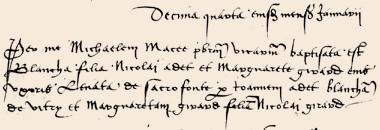 Decima quarta eiusd mensis Januarii
Per me Michaelem Macee pbrm vicarium baptisata est
Blancha filia Nicolai adet et Marguarete girard eius
uxoris Levata de sacro fonte p Joannem adet blancha
de vitry et Marguaretam girard filia Nicolai girard